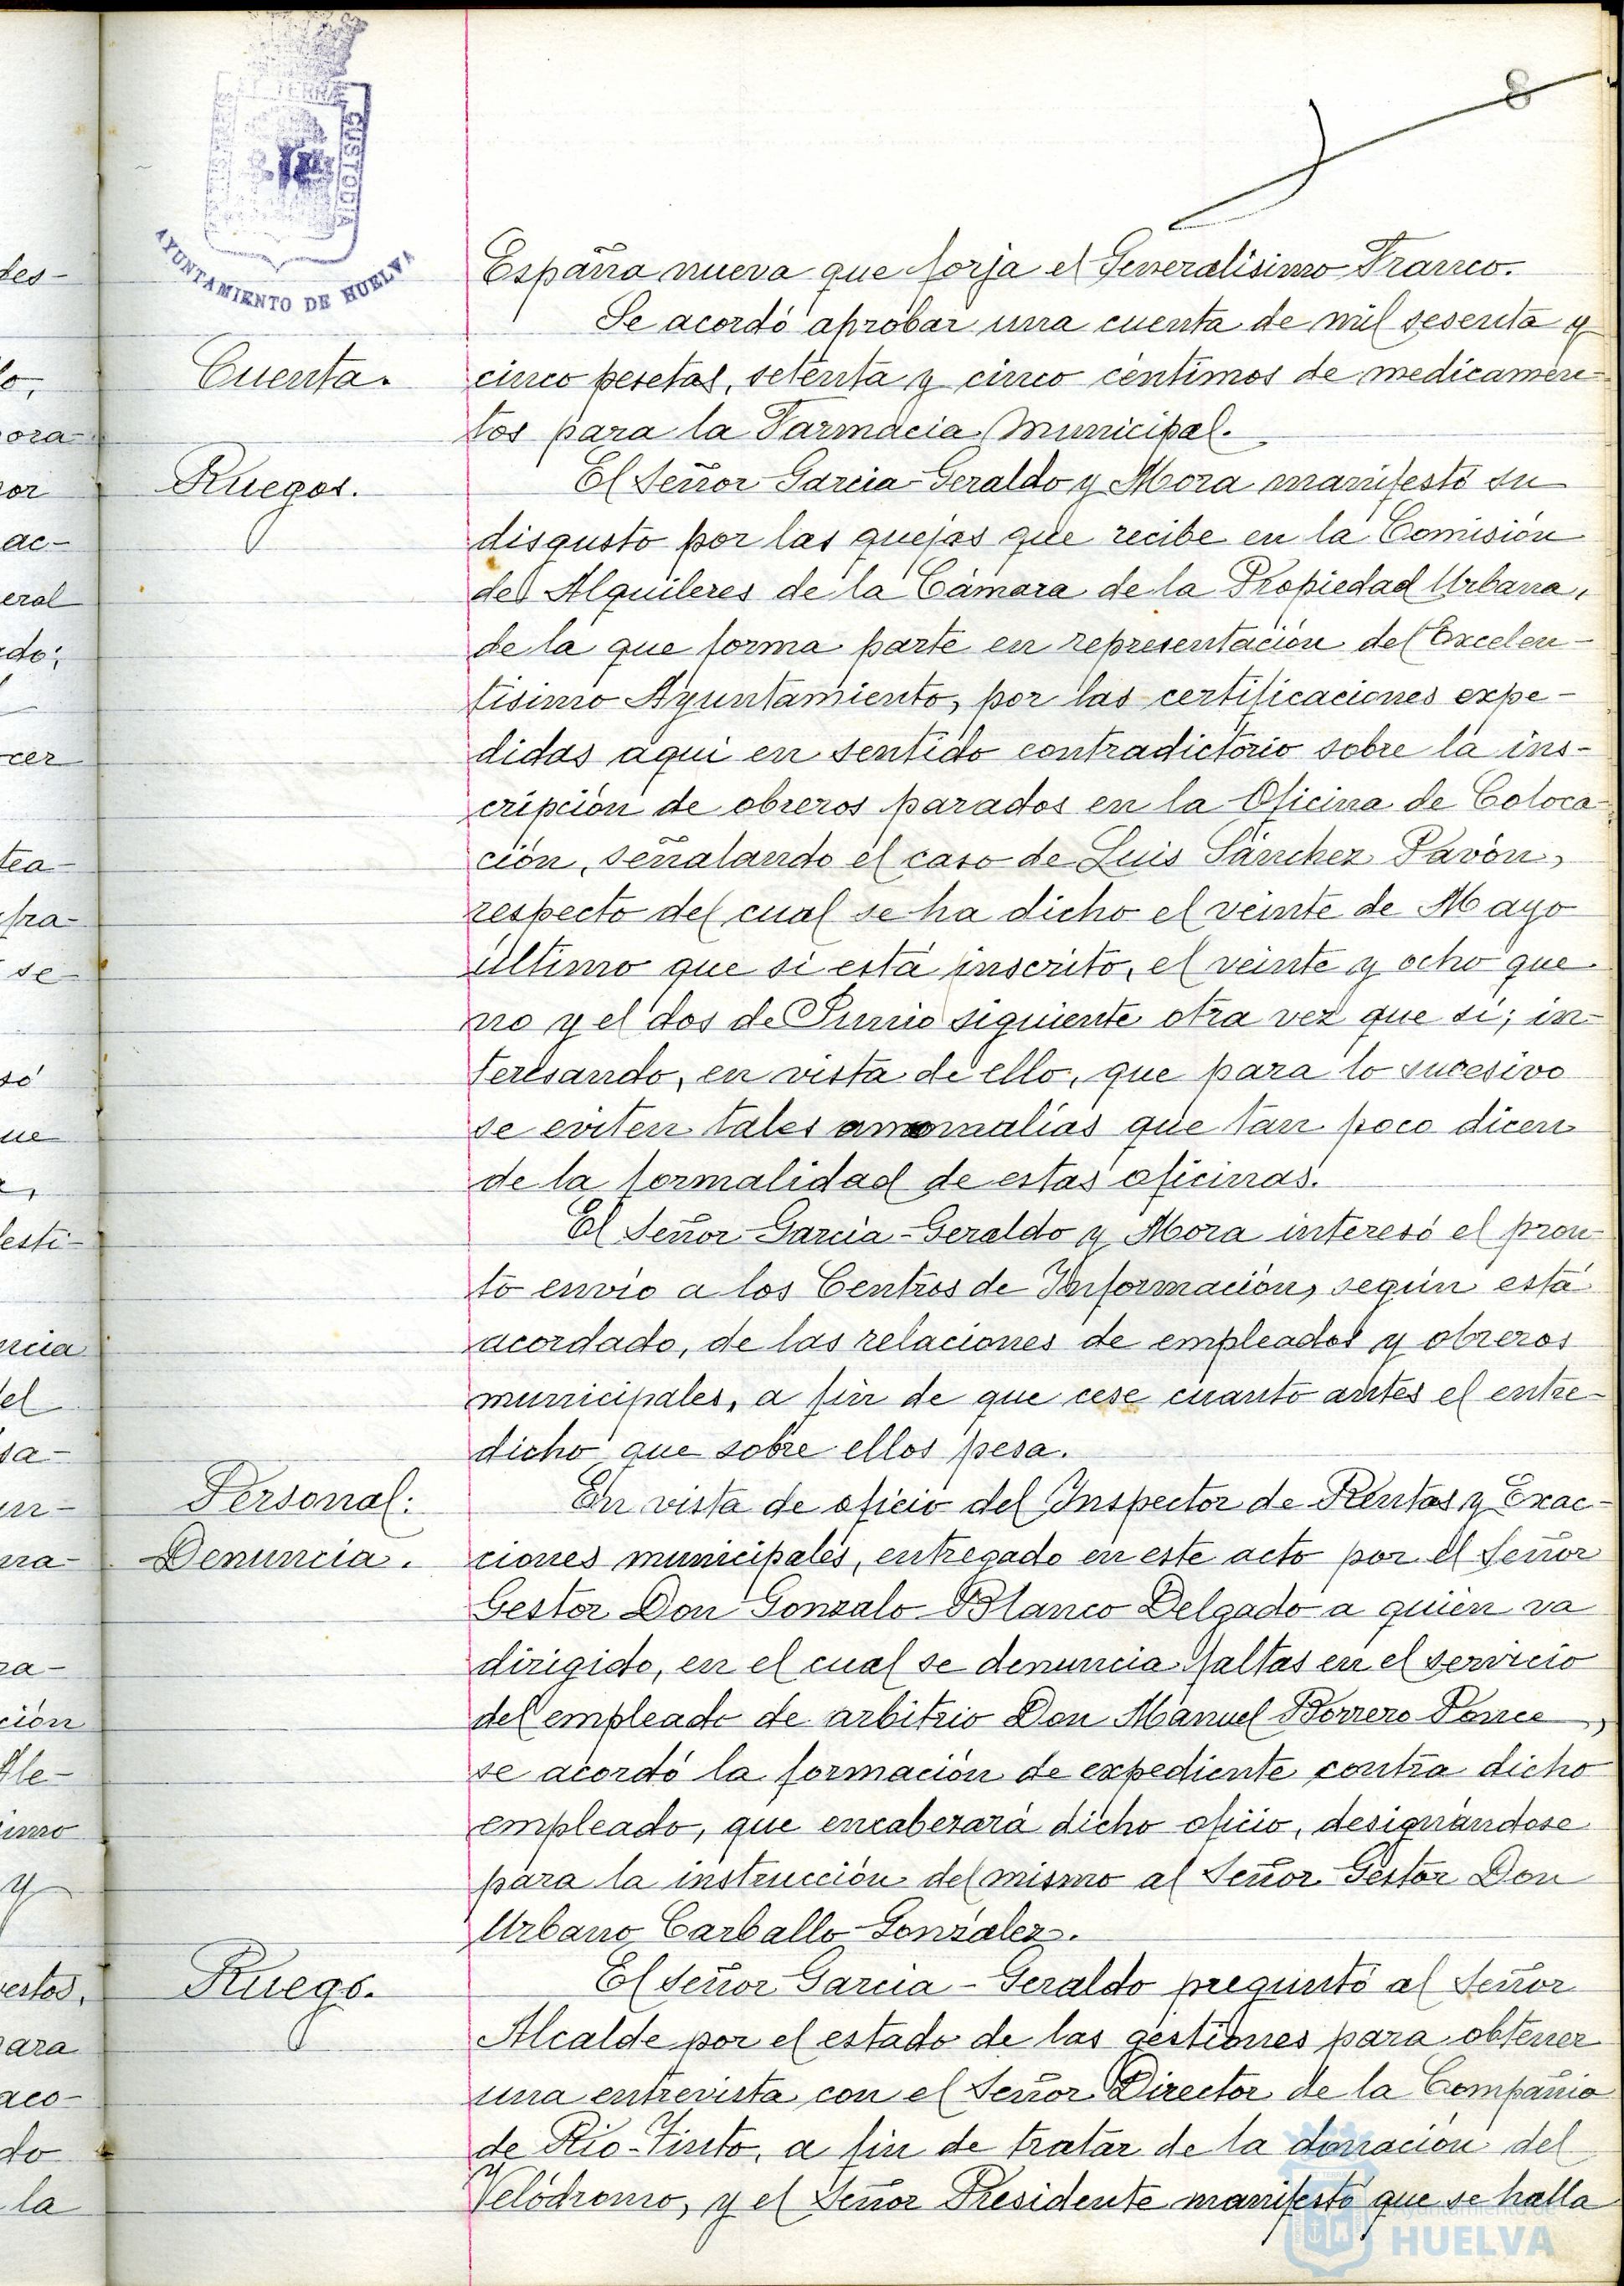 8
TERRÆ
CUSTODIA
AYUNTAMIENTO DE HUELVA
España nueva que forja el Generalísimo Franco.
Se acordó aprobar una cuenta de mil sesenta y
Cuenta.
cinco pesetas, setenta y cinco céntimos de medicamen-
tos para la Farmacia Municipal.
Ruegos.
El Señor García-Geraldo y Mora manifestó su
disgusto por las quejas que recibe en la Comisión
de Alquileres de la Cámara de la Propiedad Urbana,
de la que forma parte en representación del Excelen-
tísimo Ayuntamiento, por las certificaciones expe-
didas aquí en sentido contradictorio sobre la ins-
cripción de obreros parados en la Oficina de Coloca-
ción, señalando el caso de Luis Sánchez Pavón,
respecto del cual se ha dicho el veinte de Mayo
último que sí está inscrito, el veinte y ocho que
no y el dos de Junio siguiente otra vez que sí; in-
teresando, en vista de ello, que para lo sucesivo
se eviten tales anomalías que tan poco dicen
de la formalidad de estas oficinas.
El Señor García-Geraldo y Mora interesó el pron-
to envío a los Centros de Información, según está
acordado, de las relaciones de empleados y obreros
municipales, a fin de que cese cuanto antes el entre-
dicho que sobre ellos pesa.
Personal:
En vista de oficio del Inspector de Rentas y Exac-
Denuncia.
ciones municipales, entregado en este acto por el Señor
Gestor Don Gonzalo Blanco Delgado a quien va
dirigido, en el cual se denuncia faltas en el servicio
del empleado de arbitrio Don Manuel Borrero Ponce,
se acordó la formación de expediente contra dicho
empleado, que encabezará dicho oficio, designándose
para la instrucción del mismo al Señor Gestor Don
Urbano Carballo González.
Ruego.
El Señor García-Geraldo preguntó al Señor
Alcalde por el estado de las gestiones para obtener
una entrevista con el Señor Director de la Compañía
de Río-Tinto, a fin de tratar de la donación del
Velódromo, y el Señor Presidente manifestó que se halla
Ayuntamiento de
HUELVA